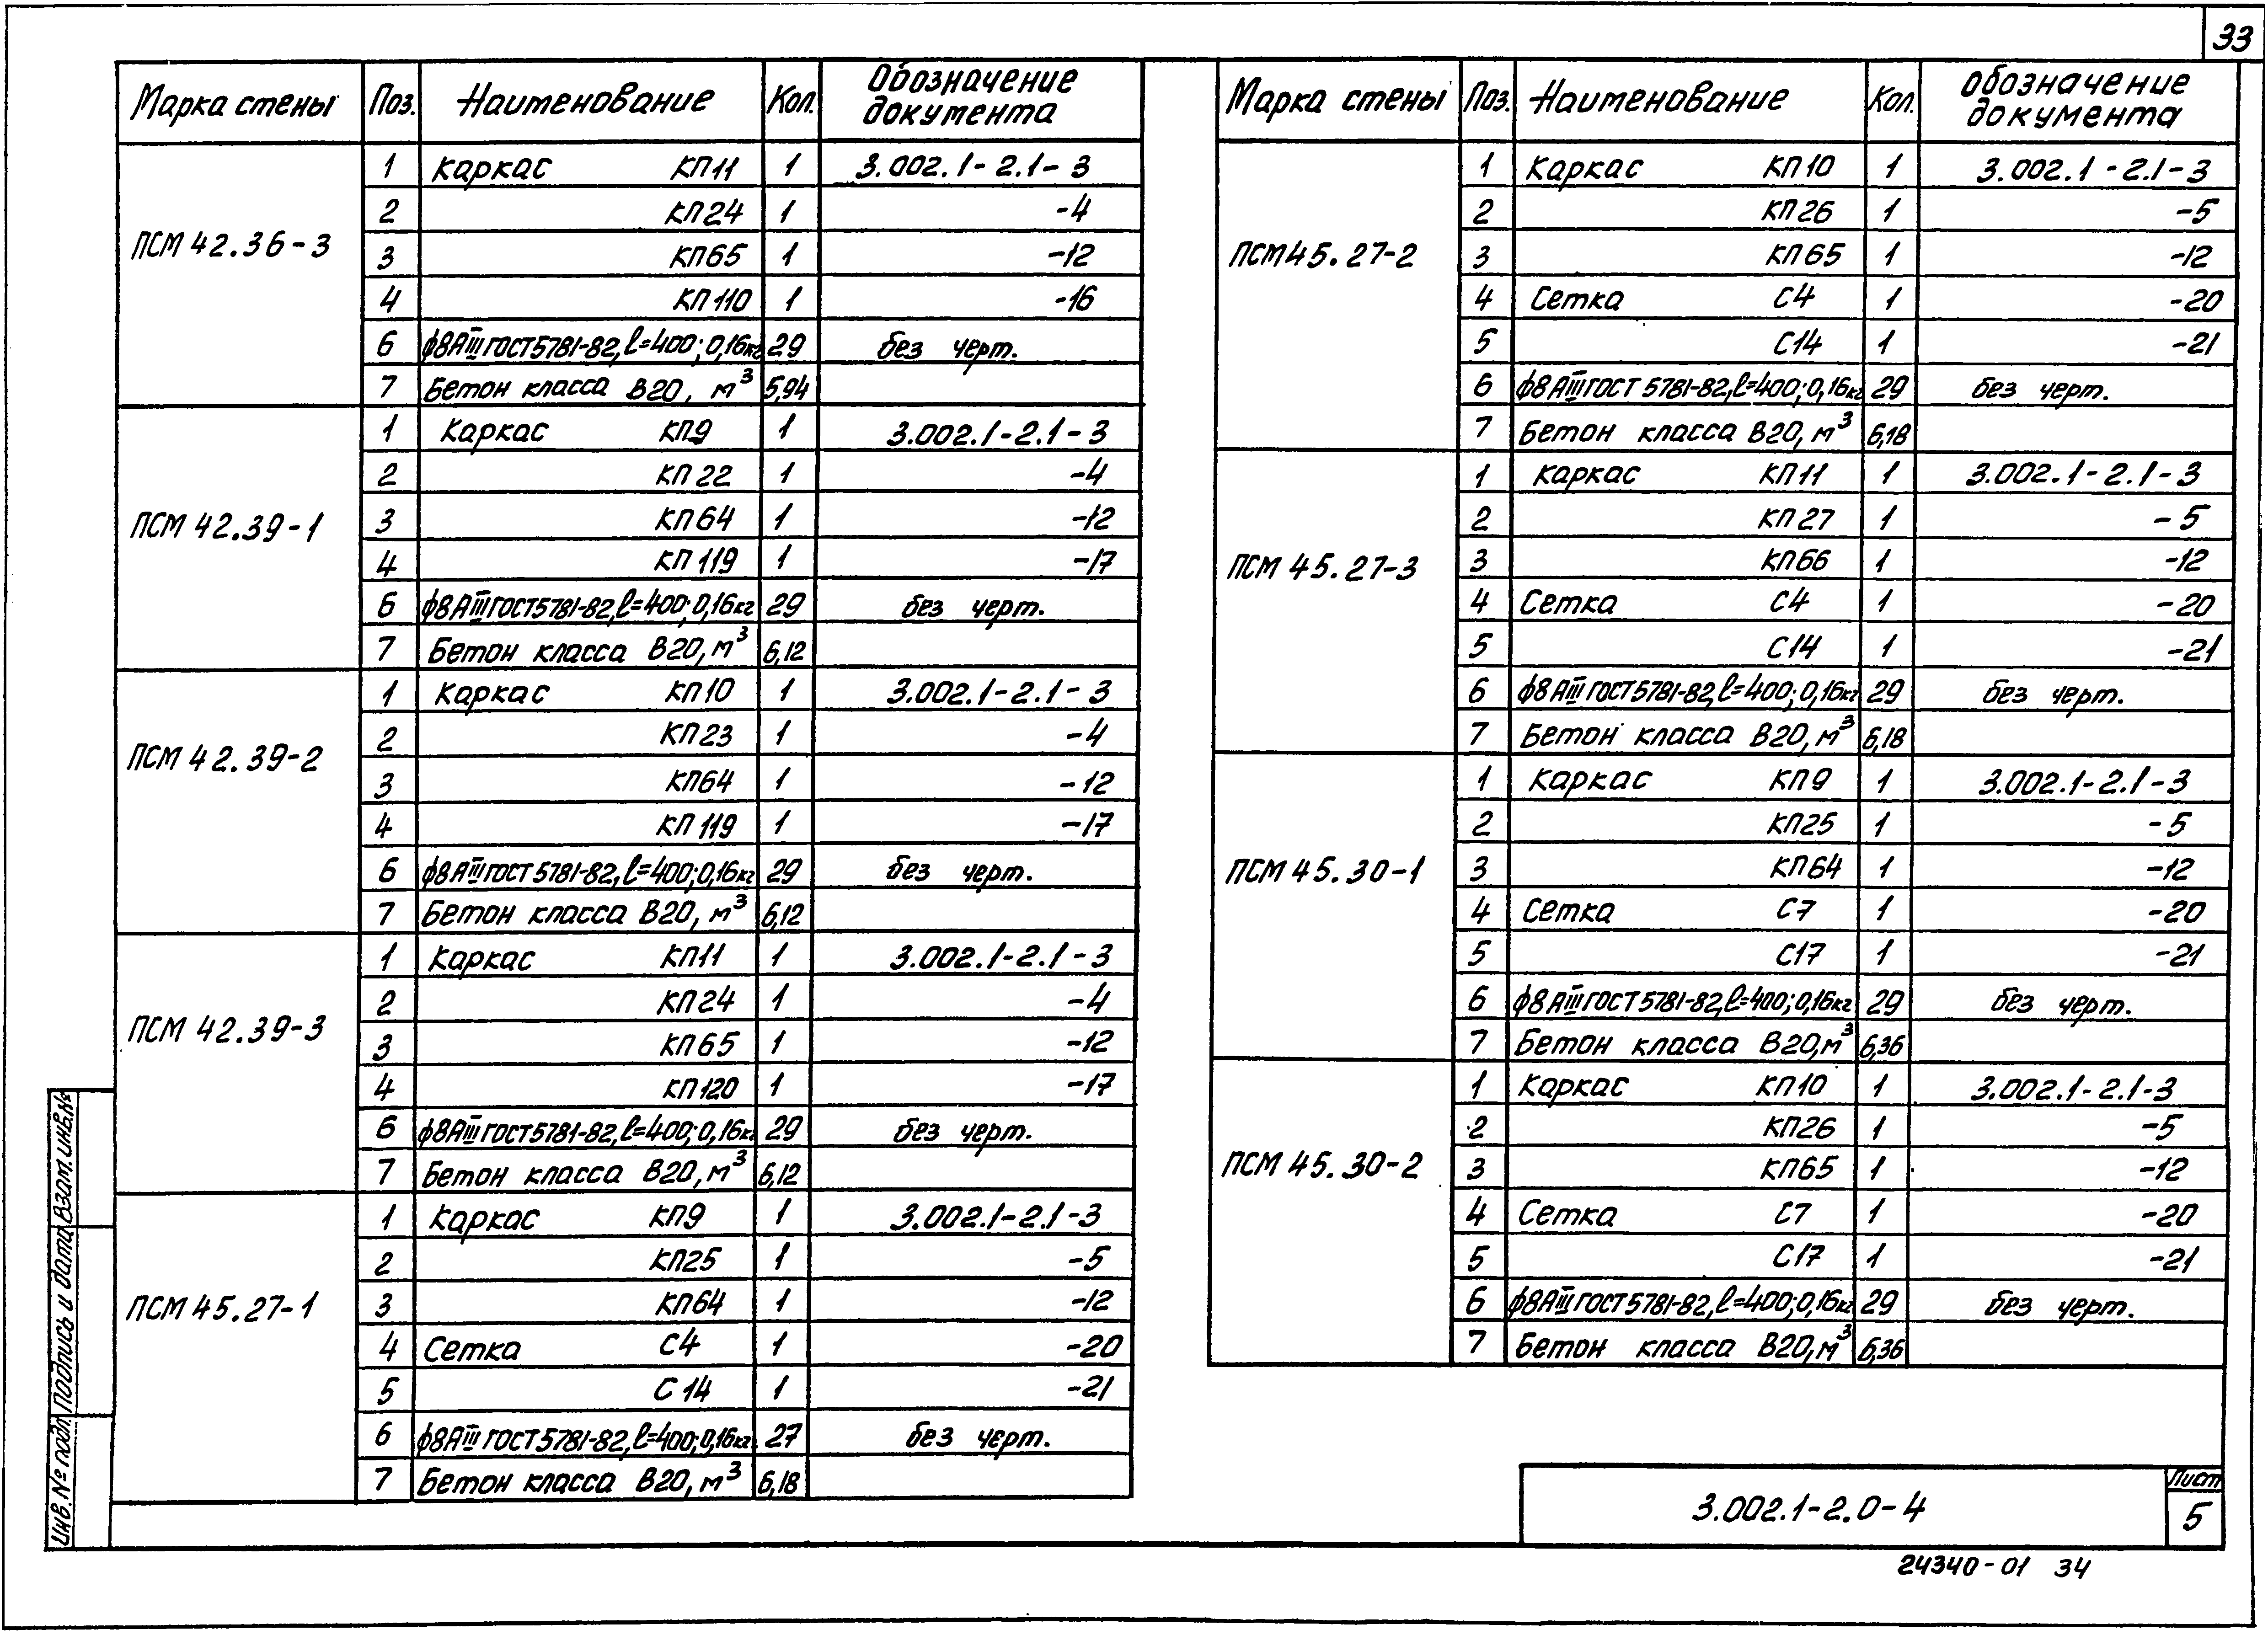 33
Марка стены Поз. Наименование Кол. Обозначение документа
ПСМ 42.36-3
1 Каркас КП11 1 3.002.1-2.1-3
2 КП24 1 -4
3 КП65 1 -12
4 КП110 1 -16
6 ф8АIII ГОСТ5781-82, ℓ=400; 0,16кг 29 без черт.
7 Бетон класса В20, м³ 5,94
ПСМ 42.39-1
1 Каркас КП9 1 3.002.1-2.1-3
2 КП22 1 -4
3 КП64 1 -12
4 КП119 1 -17
6 ф8АIII ГОСТ5781-82, ℓ=400; 0,16кг 29 без черт.
7 Бетон класса В20, м³ 6,12
ПСМ 42.39-2
1 Каркас КП10 1 3.002.1-2.1-3
2 КП23 1 -4
3 КП64 1 -12
4 КП119 1 -17
6 ф8АIII ГОСТ5781-82, ℓ=400; 0,16кг 29 без черт.
7 Бетон класса В20, м³ 6,12
ПСМ 42.39-3
1 Каркас КП11 1 3.002.1-2.1-3
2 КП24 1 -4
3 КП65 1 -12
4 КП120 1 -17
6 ф8АIII ГОСТ5781-82, ℓ=400; 0,16кг 29 без черт.
7 Бетон класса В20, м³ 6,12
ПСМ 45.27-1
1 Каркас КП9 1 3.002.1-2.1-3
2 КП25 1 -5
3 КП64 1 -12
4 Сетка С4 1 -20
5 С14 1 -21
6 ф8АIII ГОСТ5781-82, ℓ=400; 0,16кг 27 без черт.
7 Бетон класса В20, м³ 6,18
Марка стены Поз. Наименование Кол. Обозначение документа
ПСМ 45.27-2
1 Каркас КП10 1 3.002.1-2.1-3
2 КП26 1 -5
3 КП65 1 -12
4 Сетка С4 1 -20
5 С14 1 -21
6 ф8АIII ГОСТ 5781-82, ℓ=400; 0,16кг 29 без черт.
7 Бетон класса В20, м³ 6,18
ПСМ 45.27-3
1 Каркас КП11 1 3.002.1-2.1-3
2 КП27 1 -5
3 КП66 1 -12
4 Сетка С4 1 -20
5 С14 1 -21
6 ф8АIII ГОСТ5781-82, ℓ=400; 0,16кг 29 без черт.
7 Бетон класса В20, м³ 6,18
ПСМ 45.30-1
1 Каркас КП9 1 3.002.1-2.1-3
2 КП25 1 -5
3 КП64 1 -12
4 Сетка С7 1 -20
5 С17 1 -21
6 ф8АIII ГОСТ5781-82, ℓ=400; 0,16кг 29 без черт.
7 Бетон класса В20, м³ 6,36
ПСМ 45.30-2
1 Каркас КП10 1 3.002.1-2.1-3
2 КП26 1 -5
3 КП65 1 -12
4 Сетка С7 1 -20
5 С17 1 -21
6 ф8АIII ГОСТ5781-82, ℓ=400; 0,16кг 29 без черт.
7 Бетон класса В20, м³ 6,36
Инв. № подл. Подпись и дата Взам. инв. №
3.002.1-2.0-4
Лист
5
24340-01 34